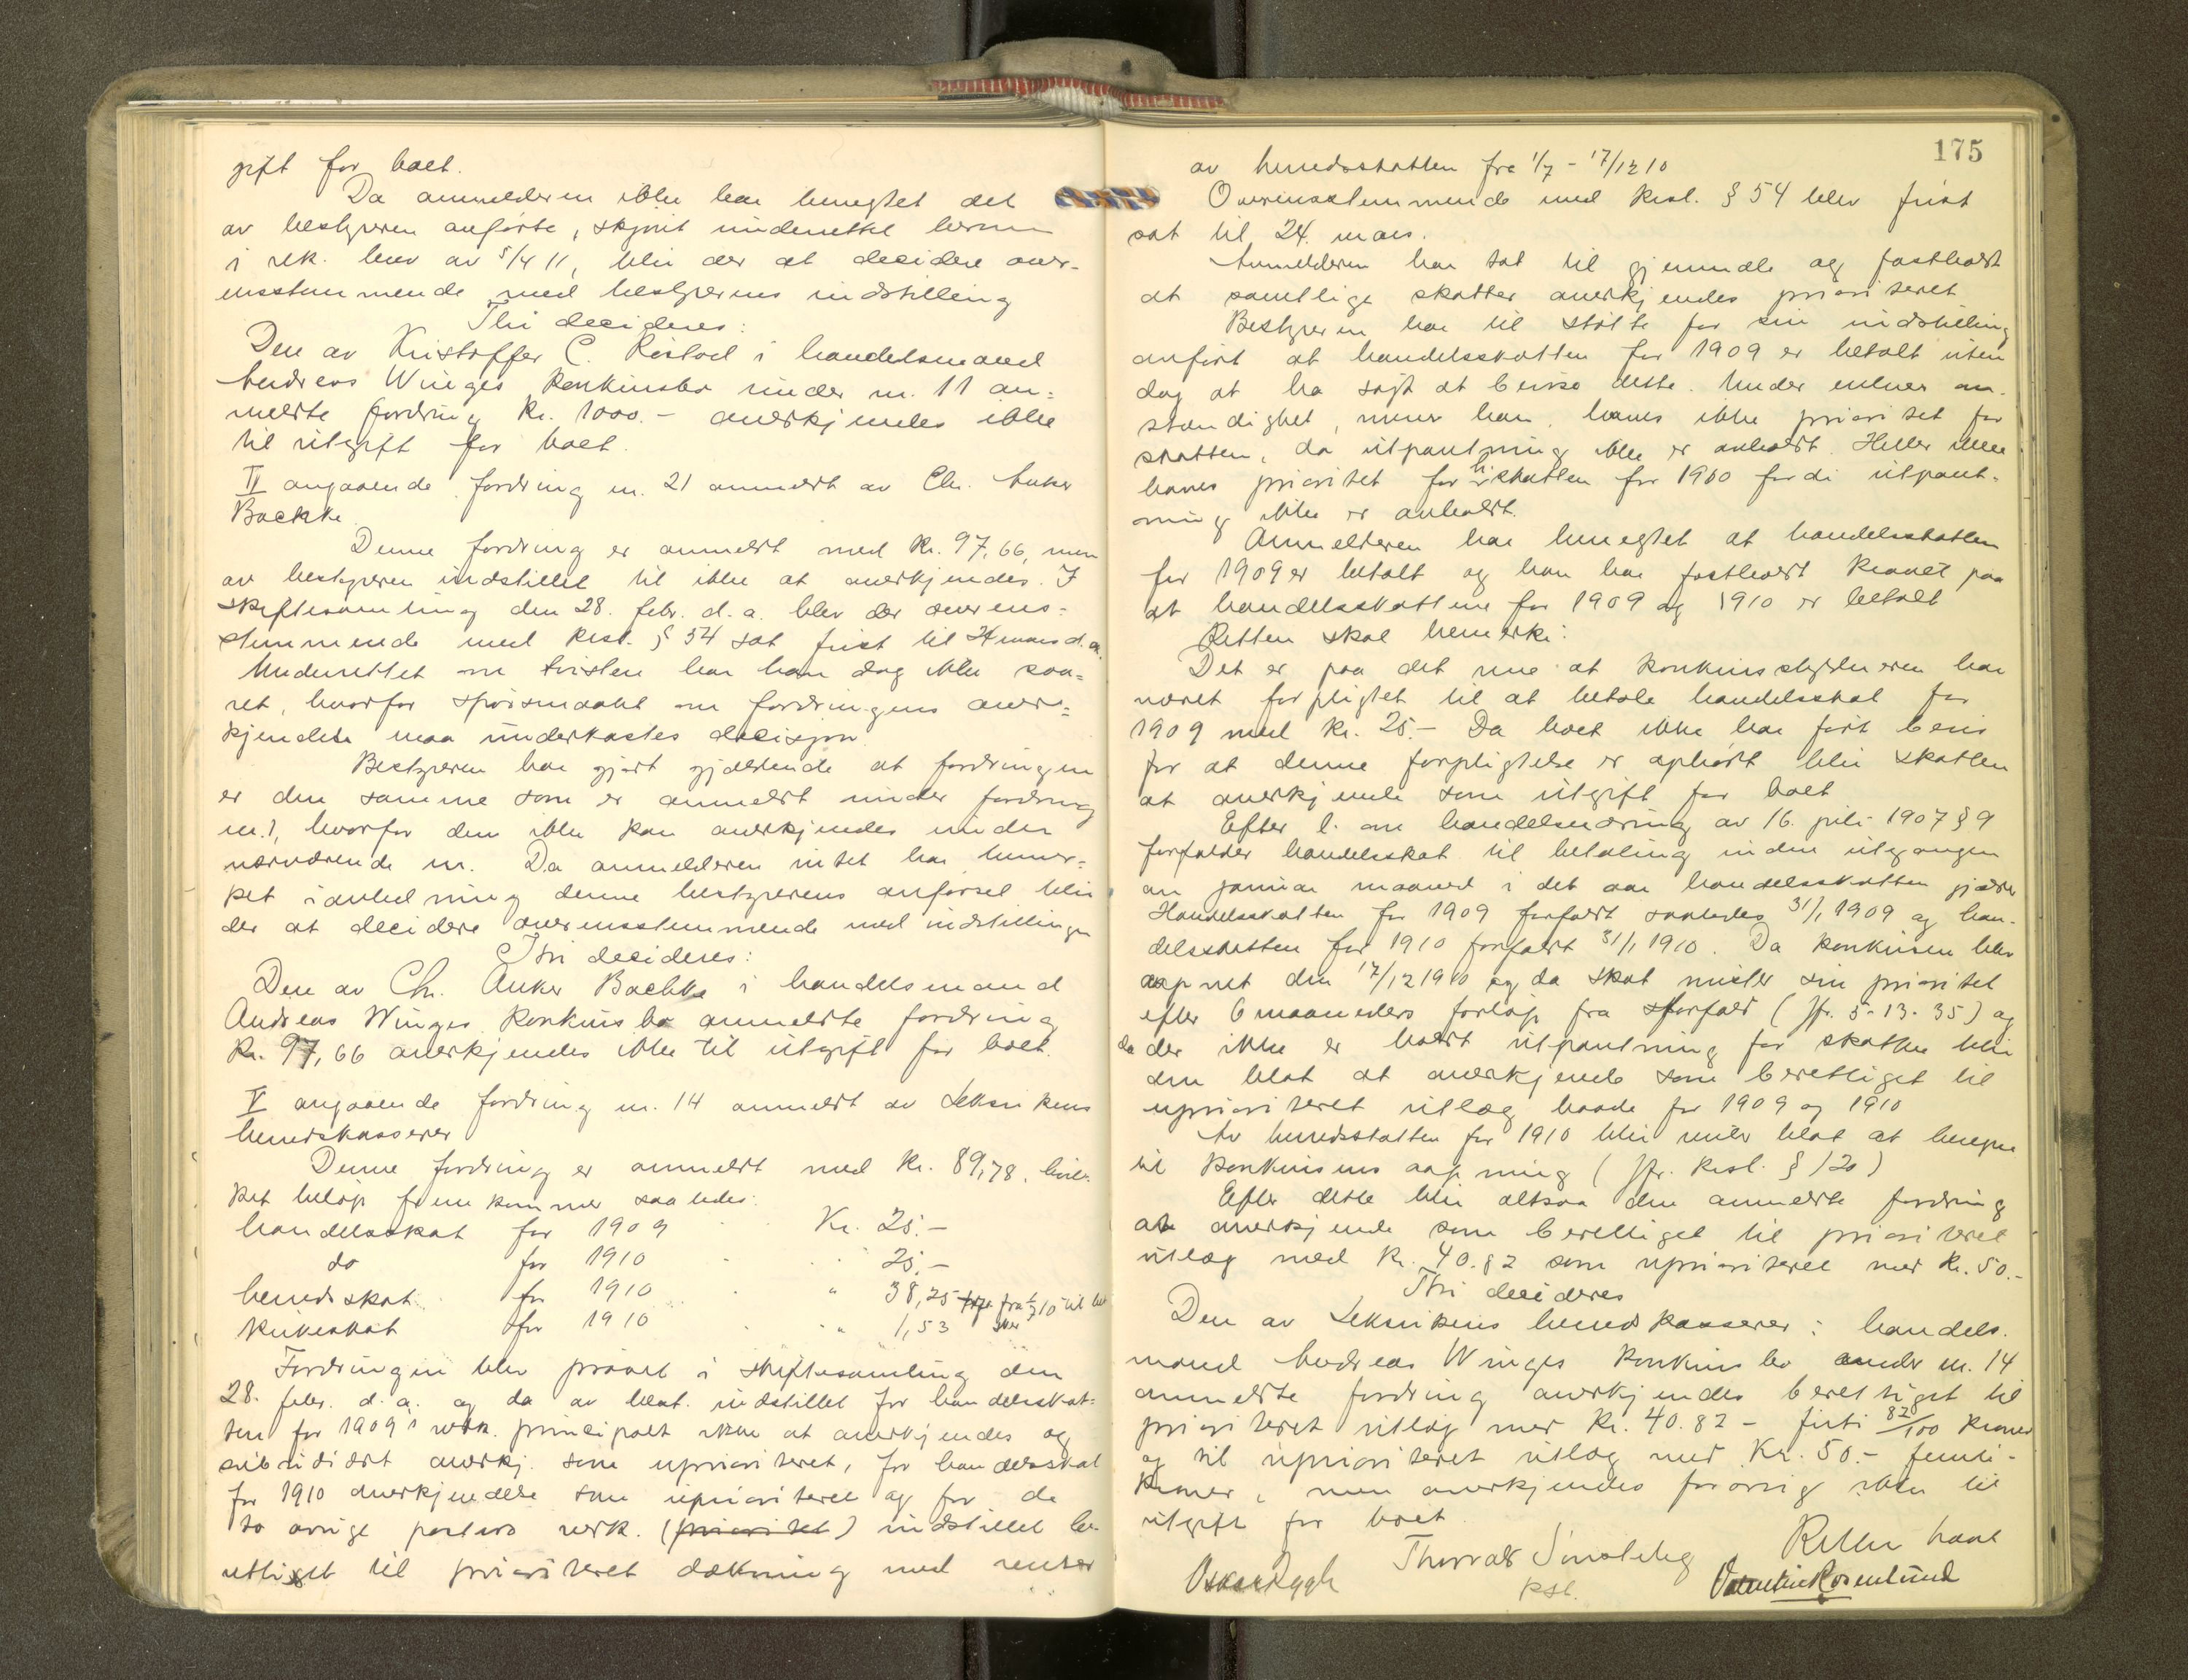 gift for boet.
Da anmelderen ikke har benegtet det
av bestyreren anførte, skjønt underrettet herom
i rek. brev av 5/4 11, blir der at decidere over-
ensstemmende med bestyrerens indstilling
Thi decideres:
Den av Kristoffer C. Ristad i handelsmand
Andreas Winges konkursbo under nr. 11 an-
meldte fordring kr. 1000.- anerkjendes ikke
til utgift for boet.
II angaaende fordring nr. 21 anmeldt av Chr. Anker
Bachke
Denne fordring er anmeldt med kr. 97,66, men
av bestyreren indstillet til ikke at anerkjendes. I
skiftesamling den 28. febr. d.a. blev der overens-
stemmende med ksl. § 54 sat frist til mars d.a.
Underrettet om tvisten har han dog ikke sva-
ret, hvorfor spørsmaalet om fordringens aner-
kjendelse maa underkastes decisjon.
Bestyreren har gjort gjældende at fordringen
er den samme som er anmeldt under fordring
nr. 1, hvorfor den ikke kan anerkjendes under
nærværende nr. Da anmelderen intet har bemer-
ket i anledning denne bestyrerens anførsel blir
der at decidere overensstemmende med indstillingen
Thi decideres:
Den av Chr. Anker Bachke i handelsmand
Andreas Winges konkursbo anmeldte fordring
Kr. 97,66 anerkjendes ikke til utgift for boet.
V angaaende fordring nr. 14 anmeldt av Leksvikens
herredskasserer
Denne fordring er anmeldt med kr. 89,78, hvil-
ket beløp fremkommer saaledes:
handelsskat for 1909 Kr. 25.-
do for 1910 25.-
herredsskat for 1910 " 38,25 fra 1/7 10 til
kirkeskat for 1910 " 1,53
Fordringen blev prøvet i skiftesamling den
28. febr. d.a. og da av best. indstillet for handelsskat-
ten for 1909's vedk. principalt ikke at anerkjendes og
subsidiært anerkj. som uprioriteret, for handelsskat
for 1910 anerkjendelse som uprioriteret og for de
to øvrige posters vedk. (prioritet) indstillet be-
rettiget til prioriteret dækning med renter
175
av herredsskatten fra 1/7 - 17/12 10
Overensstemmende med ksl. § 54 blev frist
sat til 24. mars.
Anmelderen har tat til gjenmæle og fastholdt
at samtlige skatter anerkjendes prioriteret
Bestyreren har til støtte for sin indstilling
anført at handelsskatten for 1909 er betalt uten
dog at ha søgt at bevise dette. Under enhver om-
stændighet, mener han, haves ikke prioritet for
skatten, da utpantning ikke er avholdt. Heller ikke
haves prioritet for skatten for 1910 fordi utpant-
ning ikke er avholdt.
Anmelderen har benegtet at handelsskatten
for 1909 er betalt og han har fastholdt kravet paa
at handelsskattene for 1909 og 1910 er betalt
Retten skal bemerke:
Det er paa det rene at konkursskyldneren har
været forpligtet til at betale handelsskat for
1909 med kr. 25.- Da boet ikke har ført bevis
for at denne forpligtelse er ophørt blir skatten
at anerkjende som utgift for boet
Efter l. om handelsnæring av 16. juli 1907 § 9
forfalder handelsskat til betaling inden utgangen
av januar maaned i det aar handelsskatten gjælder
Handelsskatten for 1909 forfaldt saaledes 31/1 1909 og han-
delsskatten for 1910 forfaldt 31/1 1910. Da konkursen blev
aapnet den 17/12 1910 og da skat mister sin prioritet
efter 6 maaneders forløp fra forfald (Jfr. 5-13-35) og
da der ikke er holdt utpantning for skatten blir
den blot at anerkjende som berettiget til
uprioriteret utlæg baade for 1909 og 1910
Av herredsskatten for 1910 blir renter blot at beregne
til konkursens aapning (Jfr. ksl. § 120)
Efter dette blir altsaa den anmeldte fordring
at anerkjende som berettiget til prioriteret
utlæg med kr. 40.82 som uprioriteret med kr. 50.-
Thi decideres
Den av Leksvikens herredskasserer i handels-
mand Andreas Winges konkursbo under nr. 14
anmeldte fordring anerkjendes berettiget til
prioriteret utlæg med kr. 40.82 - firti 82/100 kroner
og til uprioriteret utlæg med Kr. 50.- femti-
kroner, men anerkjendes forøvrig ikke til
utgift for boet.
Retten hævet
Thorvald
kst.
Valentin Rosenlund